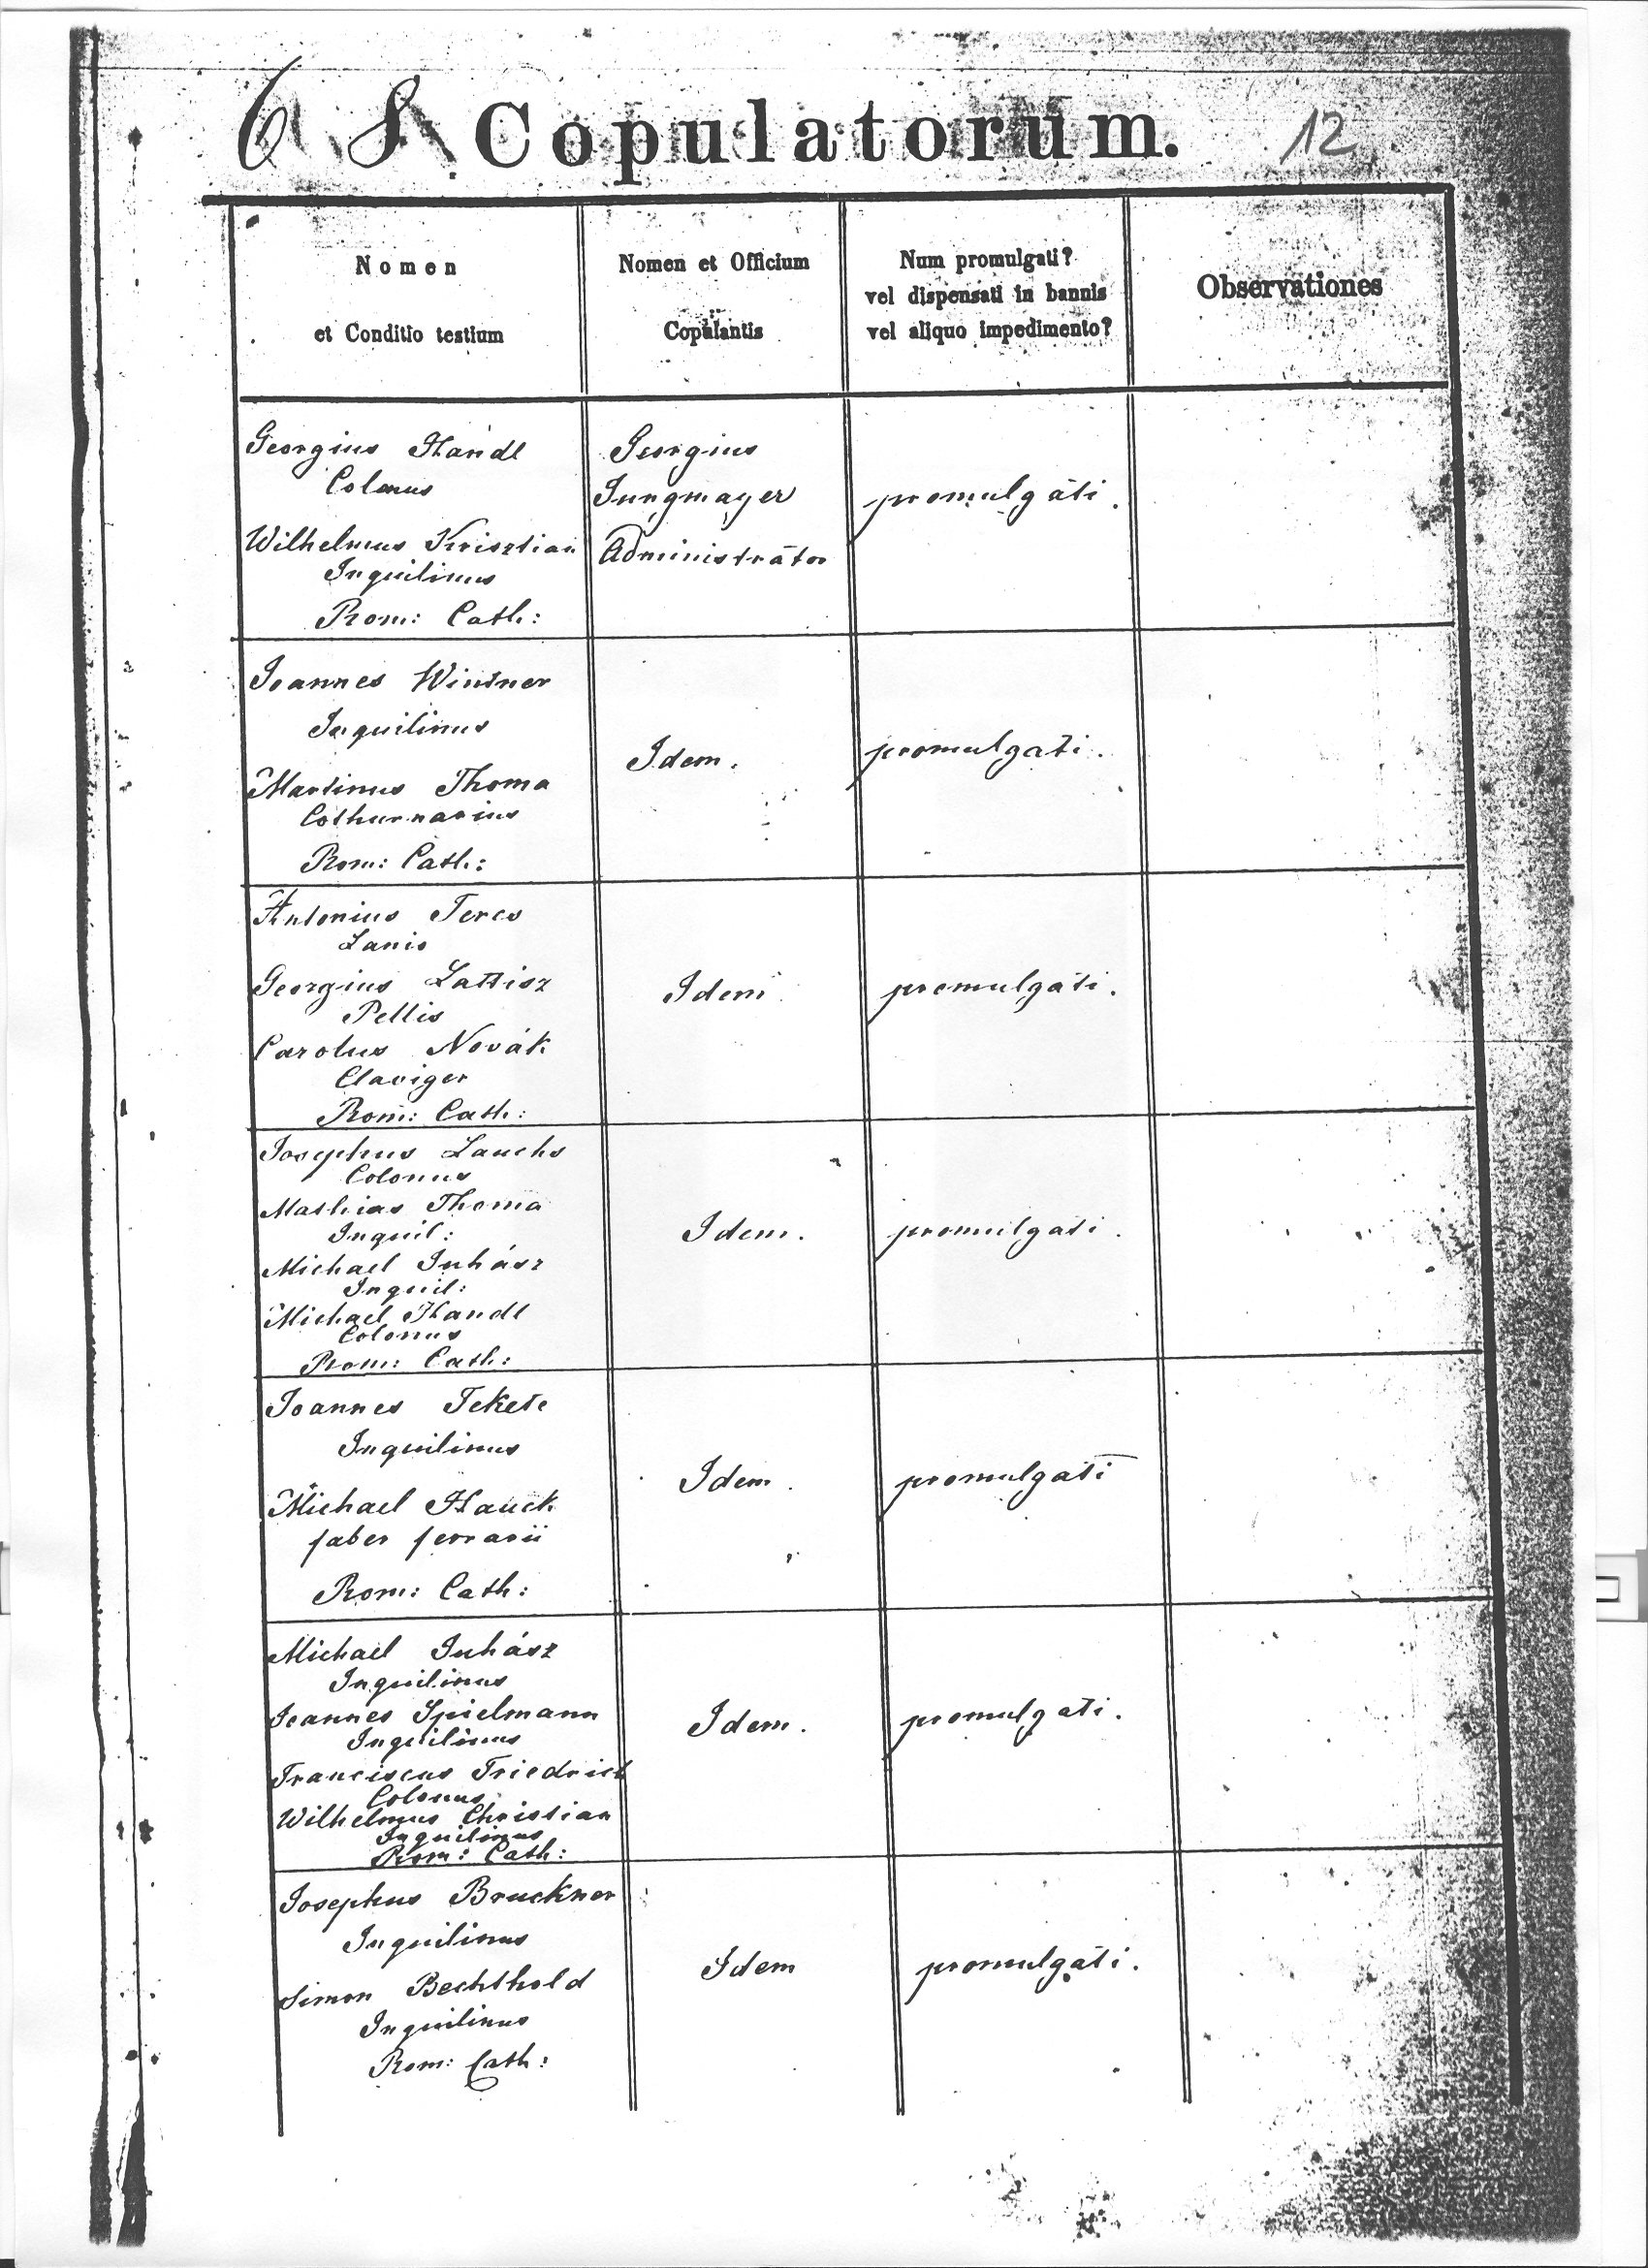 6 8 Copulatorum. 12
Nomen
et Conditio testium
Nomen et Officium
Copulantis
Num promulgati?
vel dispensati in bannis
vel aliquo impedimento?
Observationes
Georgius Handl
Colonus
Wilhelmus Krisztian
Inquilinus
Rom: Cath:
Georgius
Jungmayer
Administrátor
promulgáti.
Joannes Wintner
Inquilinus
Martinus Thoma
Cothurnarius
Rom: Cath:
Idem.
promulgati.
Antonius Teres
Lanio
Georgius Lattisz
Pellio
Carolus Novák
Claviger
Rom: Cath:
Idem
promulgáti.
Josephus Lauchs
Colonus
Mathias Thoma
Inquil:
Michael Juhász
Inquil:
Michael Handl
Colonus
Rom: Cath:
Idem.
promulgati.
Joannes Fekete
Inquilinus
Michael Hauck
faber ferrarii
Rom: Cath:
Idem.
promulgati
Michael Juhász
Inquilinus
Joannes Spielmann
Inquilinus
Franciscus Friedrich
Colonus
Wilhelmus Christian
Inquilinus
Rom: Cath:
Idem.
promulgati.
Josephus Bruckner
Inquilinus
Simon Bechthold
Inquilinus
Rom: Cath:
Idem
promulgáti.